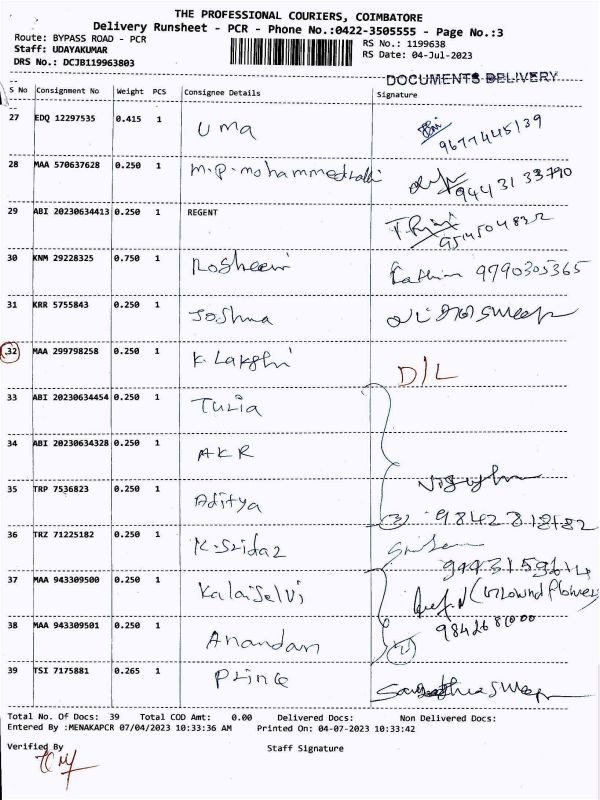 THE PROFESSIONAL COURIERS, COIMBATORE
Delivery Runsheet - PCR - Phone No.:0422-3505555 - Page No.:3
Route: BYPASS ROAD - PCR
RS No.: 1199638
Staff: UDAYAKUMAR
RS Date: 04-Jul-2023
DRS No.: DCJB119963803
DOCUMENTS DELIVERY
S No Consignment No Weight PCS Consignee Details Signature
27 EDQ 12297535 0.415 1 Uma 9677445139
28 MAA 570637628 0.250 1 9443133790
29 ABI 20230634413 0.250 1 REGENT
30 KNM 29228325 0.750 1 9790305365
31 KRR 5755843 0.250 1 Joshma
32 MAA 299798258 0.250 1 K. Lakshi D/L
33 ABI 20230634454 0.250 1
34 ABI 20230634328 0.250 1 AKR
35 TRP 7536823 0.250 1 Aditya (3)
36 TRZ 71225182 0.250 1 K.Sridar
37 MAA 943309500 0.250 1 Kalaiselvi
38 MAA 943309501 0.250 1 Anandan
39 TSI 7175881 0.265 1 Prince
Total No. Of Docs: 39 Total COD Amt: 0.00 Delivered Docs: Non Delivered Docs:
Entered By :MENAKAPCR 07/04/2023 10:33:36 AM Printed On: 04-07-2023 10:33:42
Verified By Staff Signature